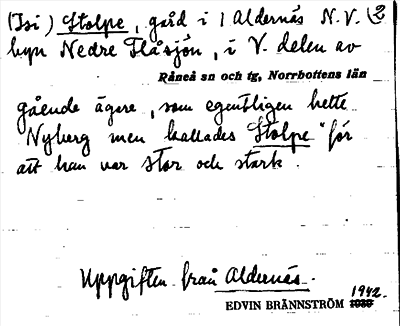 (Isi) Stolpe, gård i 1 Aldernäs N.V. (2
byn Nedre Flåsjön, i V. delen av
Råneå sn och tg, Norrbottens län
gående ägare, som egentligen hette
Nyberg men kallades "Stolpe" för
att han var stor och stark.
Uppgiften från Aldernäs.
1942.
EDVIN BRÄNNSTRÖM 1939